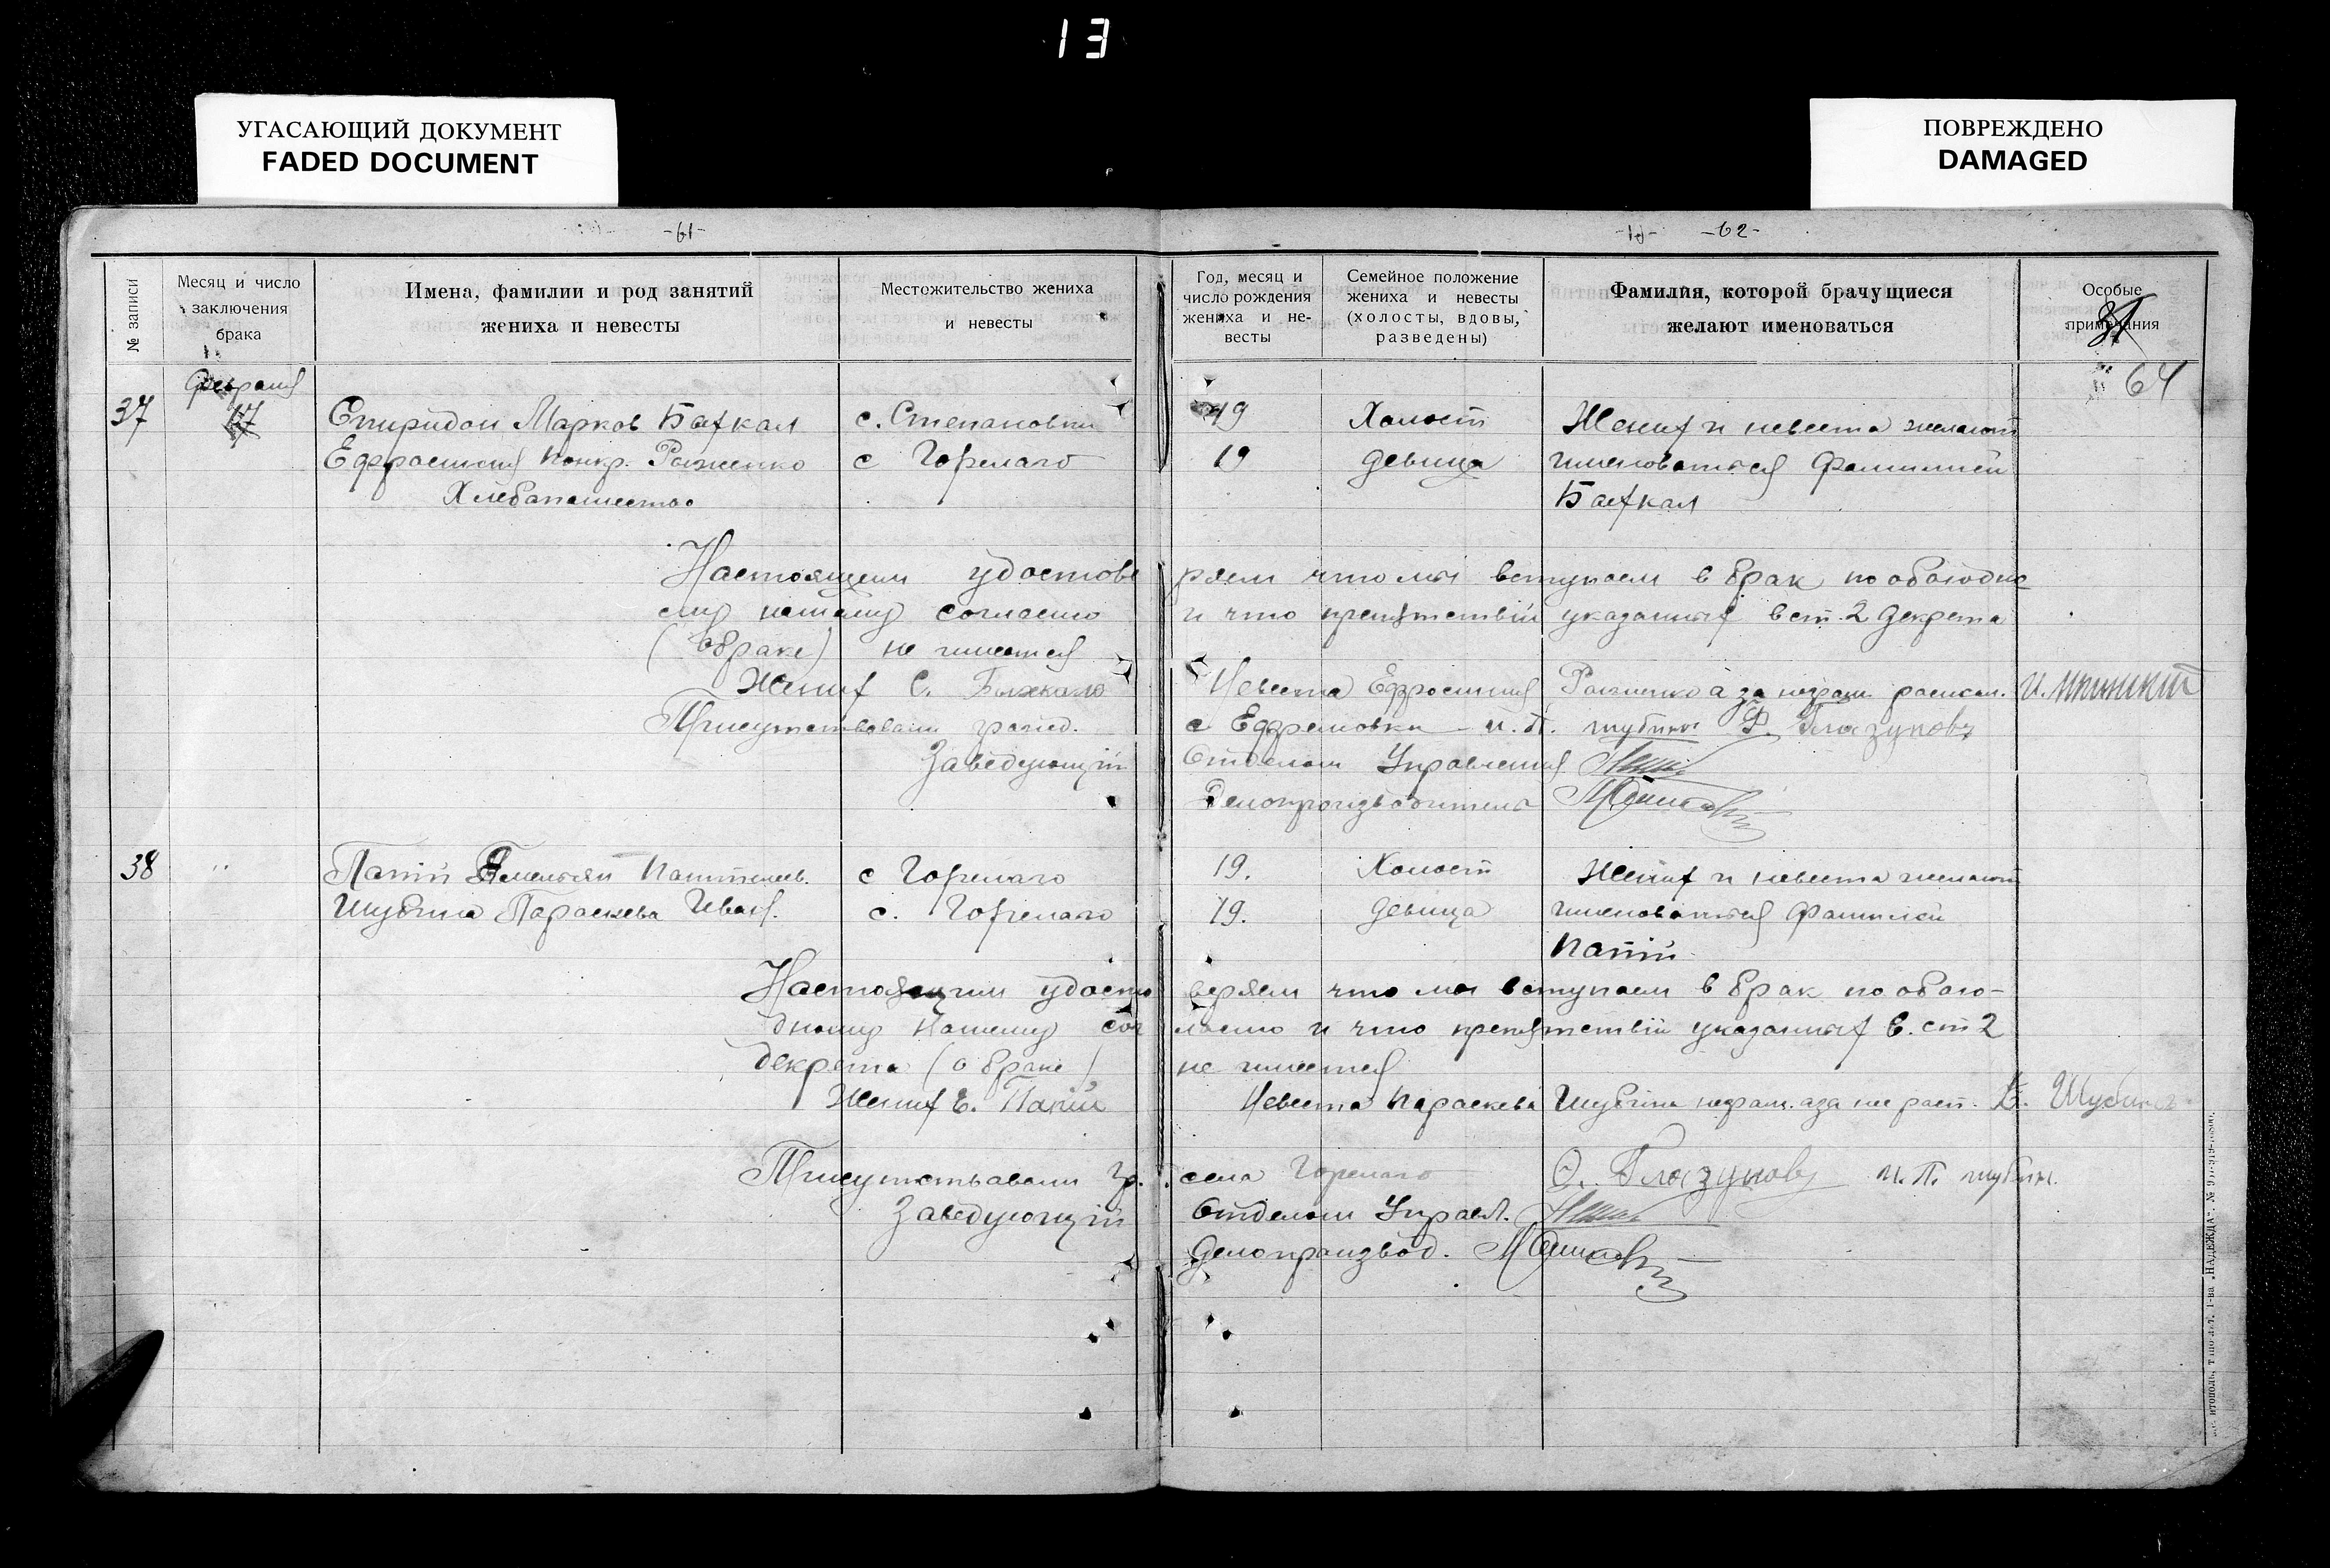 13
УГАСАЮЩИЙ ДОКУМЕНТ
FADED DOCUMENT
ПОВРЕЖДЕНО
DAMAGED
-61-
-62-
№ записи
Месяц и число заключения брака
Имена, фамилии и род занятий жениха и невесты
Местожительство жениха и невесты
Год, месяц и число рождения жениха и невесты
Семейное положение жениха и невесты (холосты, вдовы, разведены)
Фамилия, которой брачущиеся желают именоваться
Особые примечания
64
Февраля
37 17 Спиридон Марков Бажкал с. Степановки 19 Холост Жених и невеста желают
Ефросиния Понкр. Рыженко с Горелаго 19 девица именоваться фамилией
Хлебопашество Бажкал
Настоящим удостове ряем что мы вступаем в брак по обоюдно
му нашему согласию и что препятствий указанных в ст. 2 декрета
(о браке) не имеется
Жених С. Невеста Ефросиния Рыженко а за неграм.
Присутствовали с Ефремовки И. П. шубин Ф. Глазуновъ
Заведующий Отделом Управления
Делопроизводитель
38 " Папий Емельян Пантелеев. с Горелаго 19. Холост Жених и невеста желают
Шубина Параскева Иван. с. Горелаго 19. девица именоваться фамилией
Папий
Настоящим удосто веряем что мы вступаем в брак по обою-
дному нашему сог ласию и что препятствий указанных в. ст 2
декрета (о браке) не имеется
Жених Е. Папий Невеста Параскева Шубина неграм. а за нее расп. Шубин
Присутствовали гр. села Горелаго Ф. Глазуновъ И. П. шубин.
Заведующий Отделом Управл.
Делопроизвод.